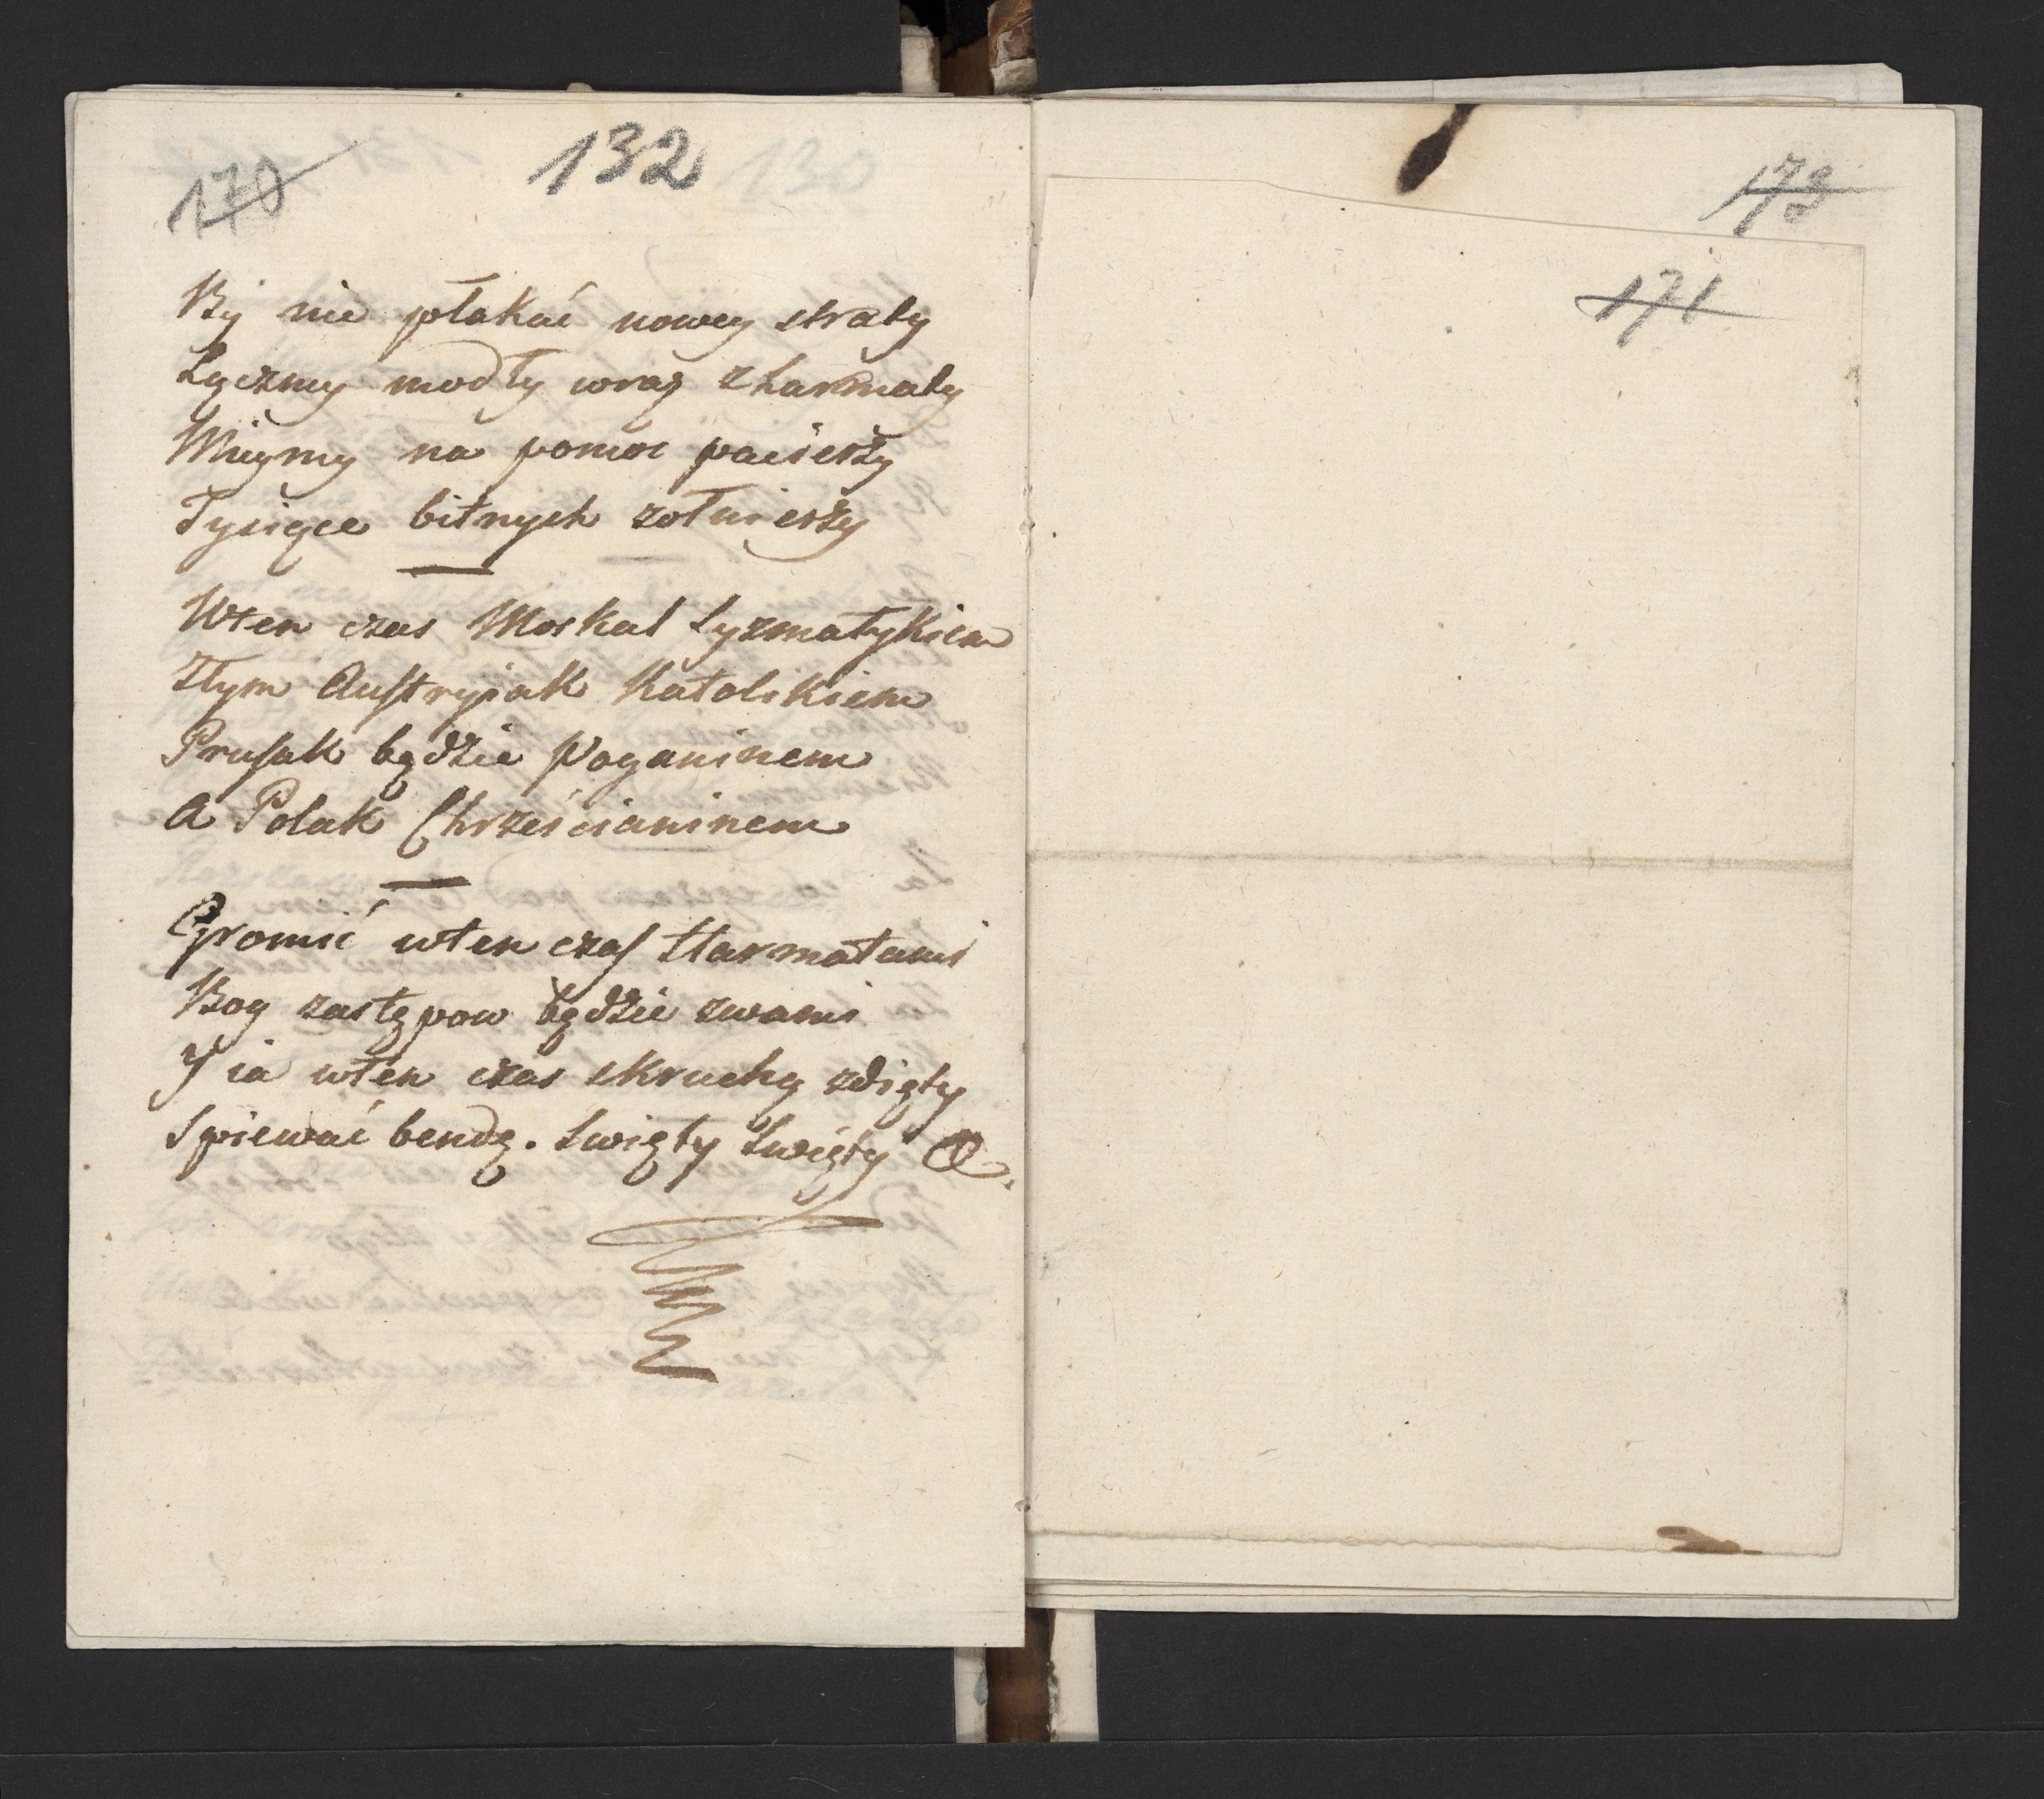 170
132
By nie płakać nowey straty
Łączmy modły wraz z harmaty
Mieymy na pomoc pacierzy
Tysiące bitnych zołnierzy
Wten czas Moskal Syzmatykiem
Złym Austryiak Katolikiem
Prusak będzie Poganinem
A Polak Chrześcianinem
Gromić wten czas Harmatami
Bog zastępow będzie zwami
Y ia wten czas skruchą zdięty
Spiewać bendę. Swięty Swięty &.
173
171